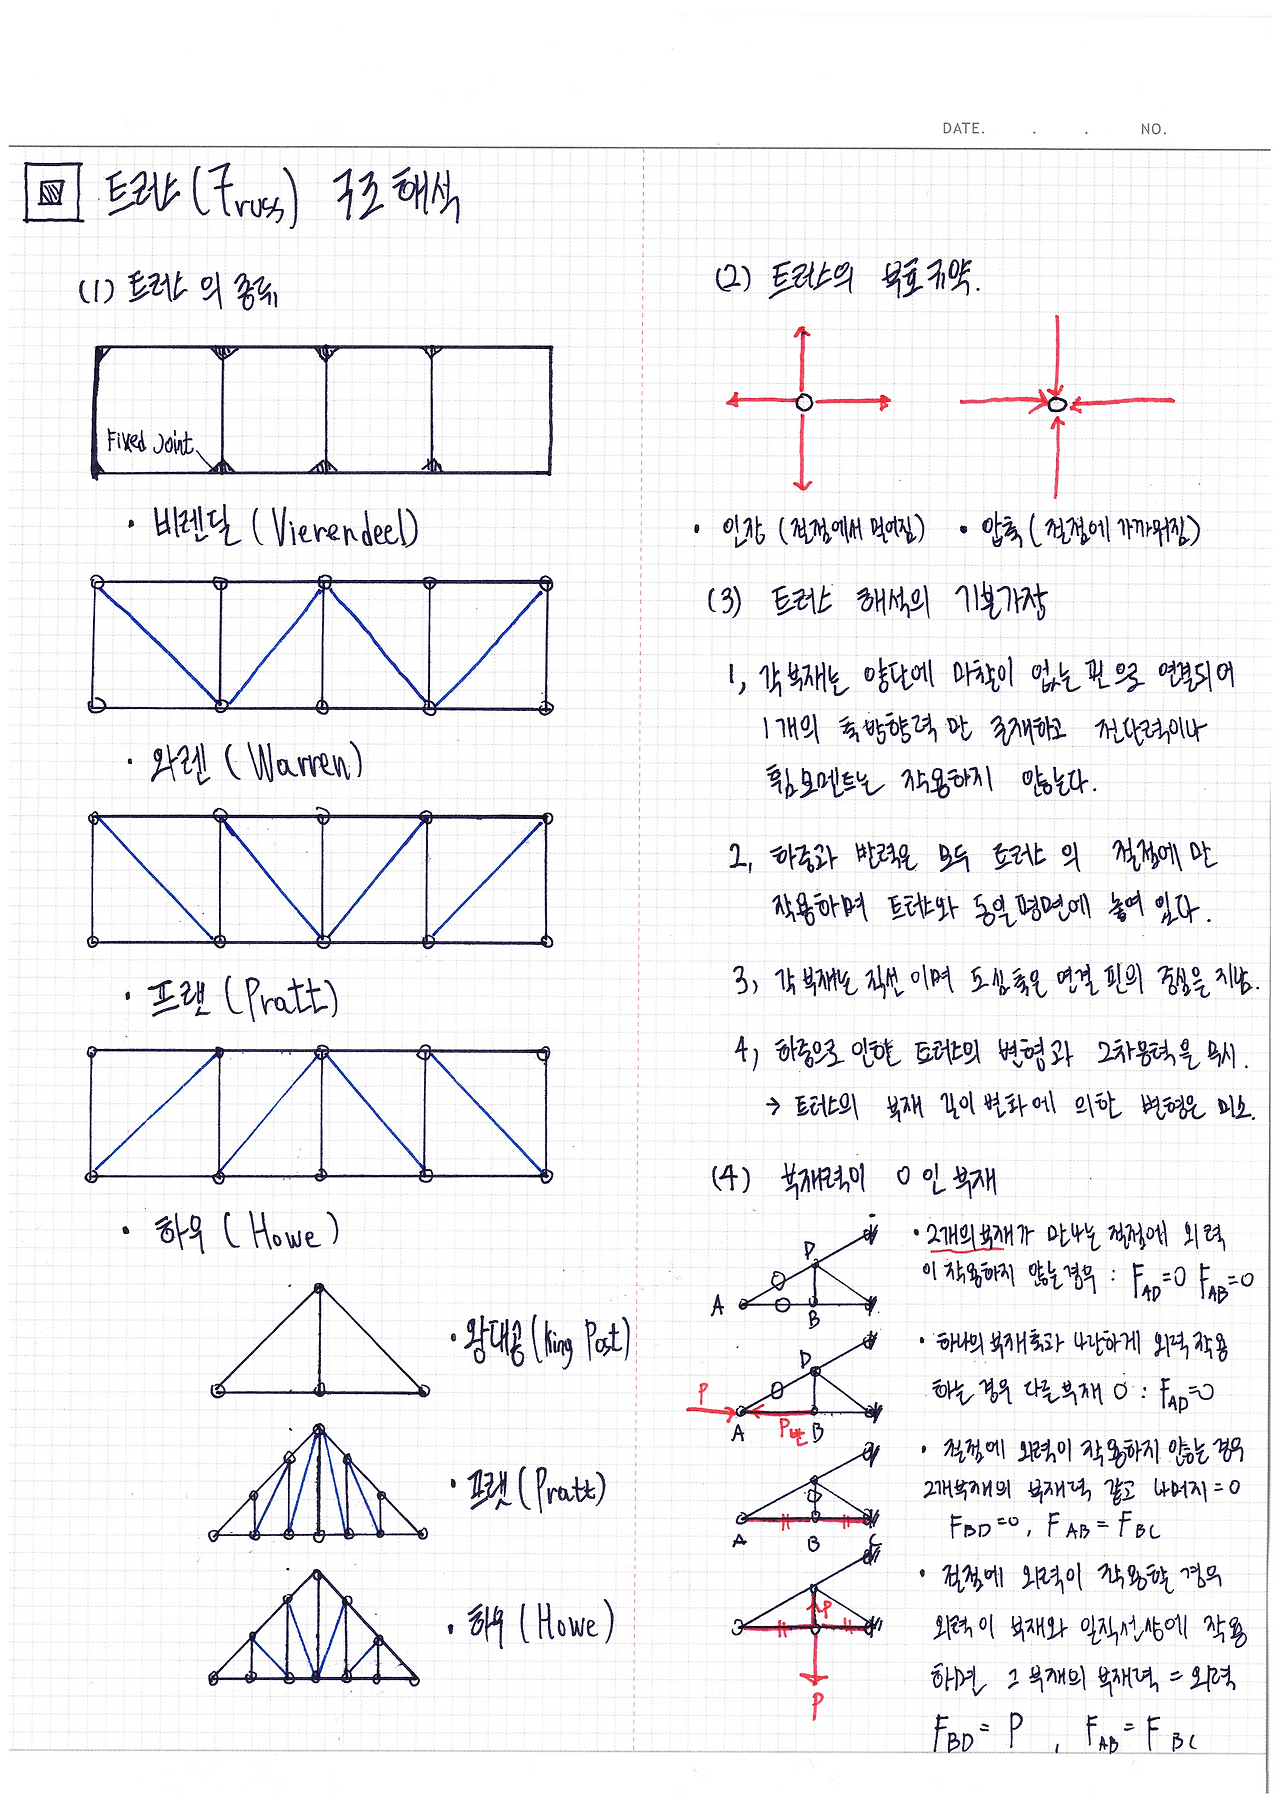 DATE. . . NO.
트러스(Truss) 구조해석
(1) 트러스의 종류
Fixed Joint
· 비렌딜 (Vierendeel)
· 와렌 (Warren)
· 프랫 (Pratt)
· 하우 (Howe)
· 왕대공 (King Post)
· 프랫 (Pratt)
· 하우 (Howe)
(2) 트러스의 부호규약.
· 인장 (절점에서 멀어짐) · 압축 (절점에 가까워짐)
(3) 트러스 해석의 기본가정
1, 각 부재는 양단에 마찰이 없는 핀으로 연결되어
1개의 축방향력만 존재하고 전단력이나
휨모멘트는 작용하지 않는다.
2, 하중과 반력은 모두 트러스의 절점에만
작용하며 트러스와 동일평면에 놓여 있다.
3, 각 부재는 직선이며 도심축은 연결 핀의 중심을 지남.
4, 하중으로 인한 트러스의 변형과 2차응력을 무시.
→ 트러스의 부재 길이변화에 의한 변형은 미소.
(4) 부재력이 0인 부재
A B D
· 2개의 부재가 만나는 절점에 외력
이 작용하지 않는경우 : F_AD=0 F_AB=0
P A P반 B D
· 하나의 부재축과 나란하게 외력 작용
하는 경우 다른부재 0 : F_AD=0
A B C
· 절점에 외력이 작용하지 않는 경우
2개부재의 부재력 같고 나머지=0
F_BD=0, F_AB=F_BC
P
P
· 절점에 외력이 작용할 경우
외력이 부재와 일직선상에 작용
하면 그 부재의 부재력 = 외력
F_BD = P , F_AB = F_BC